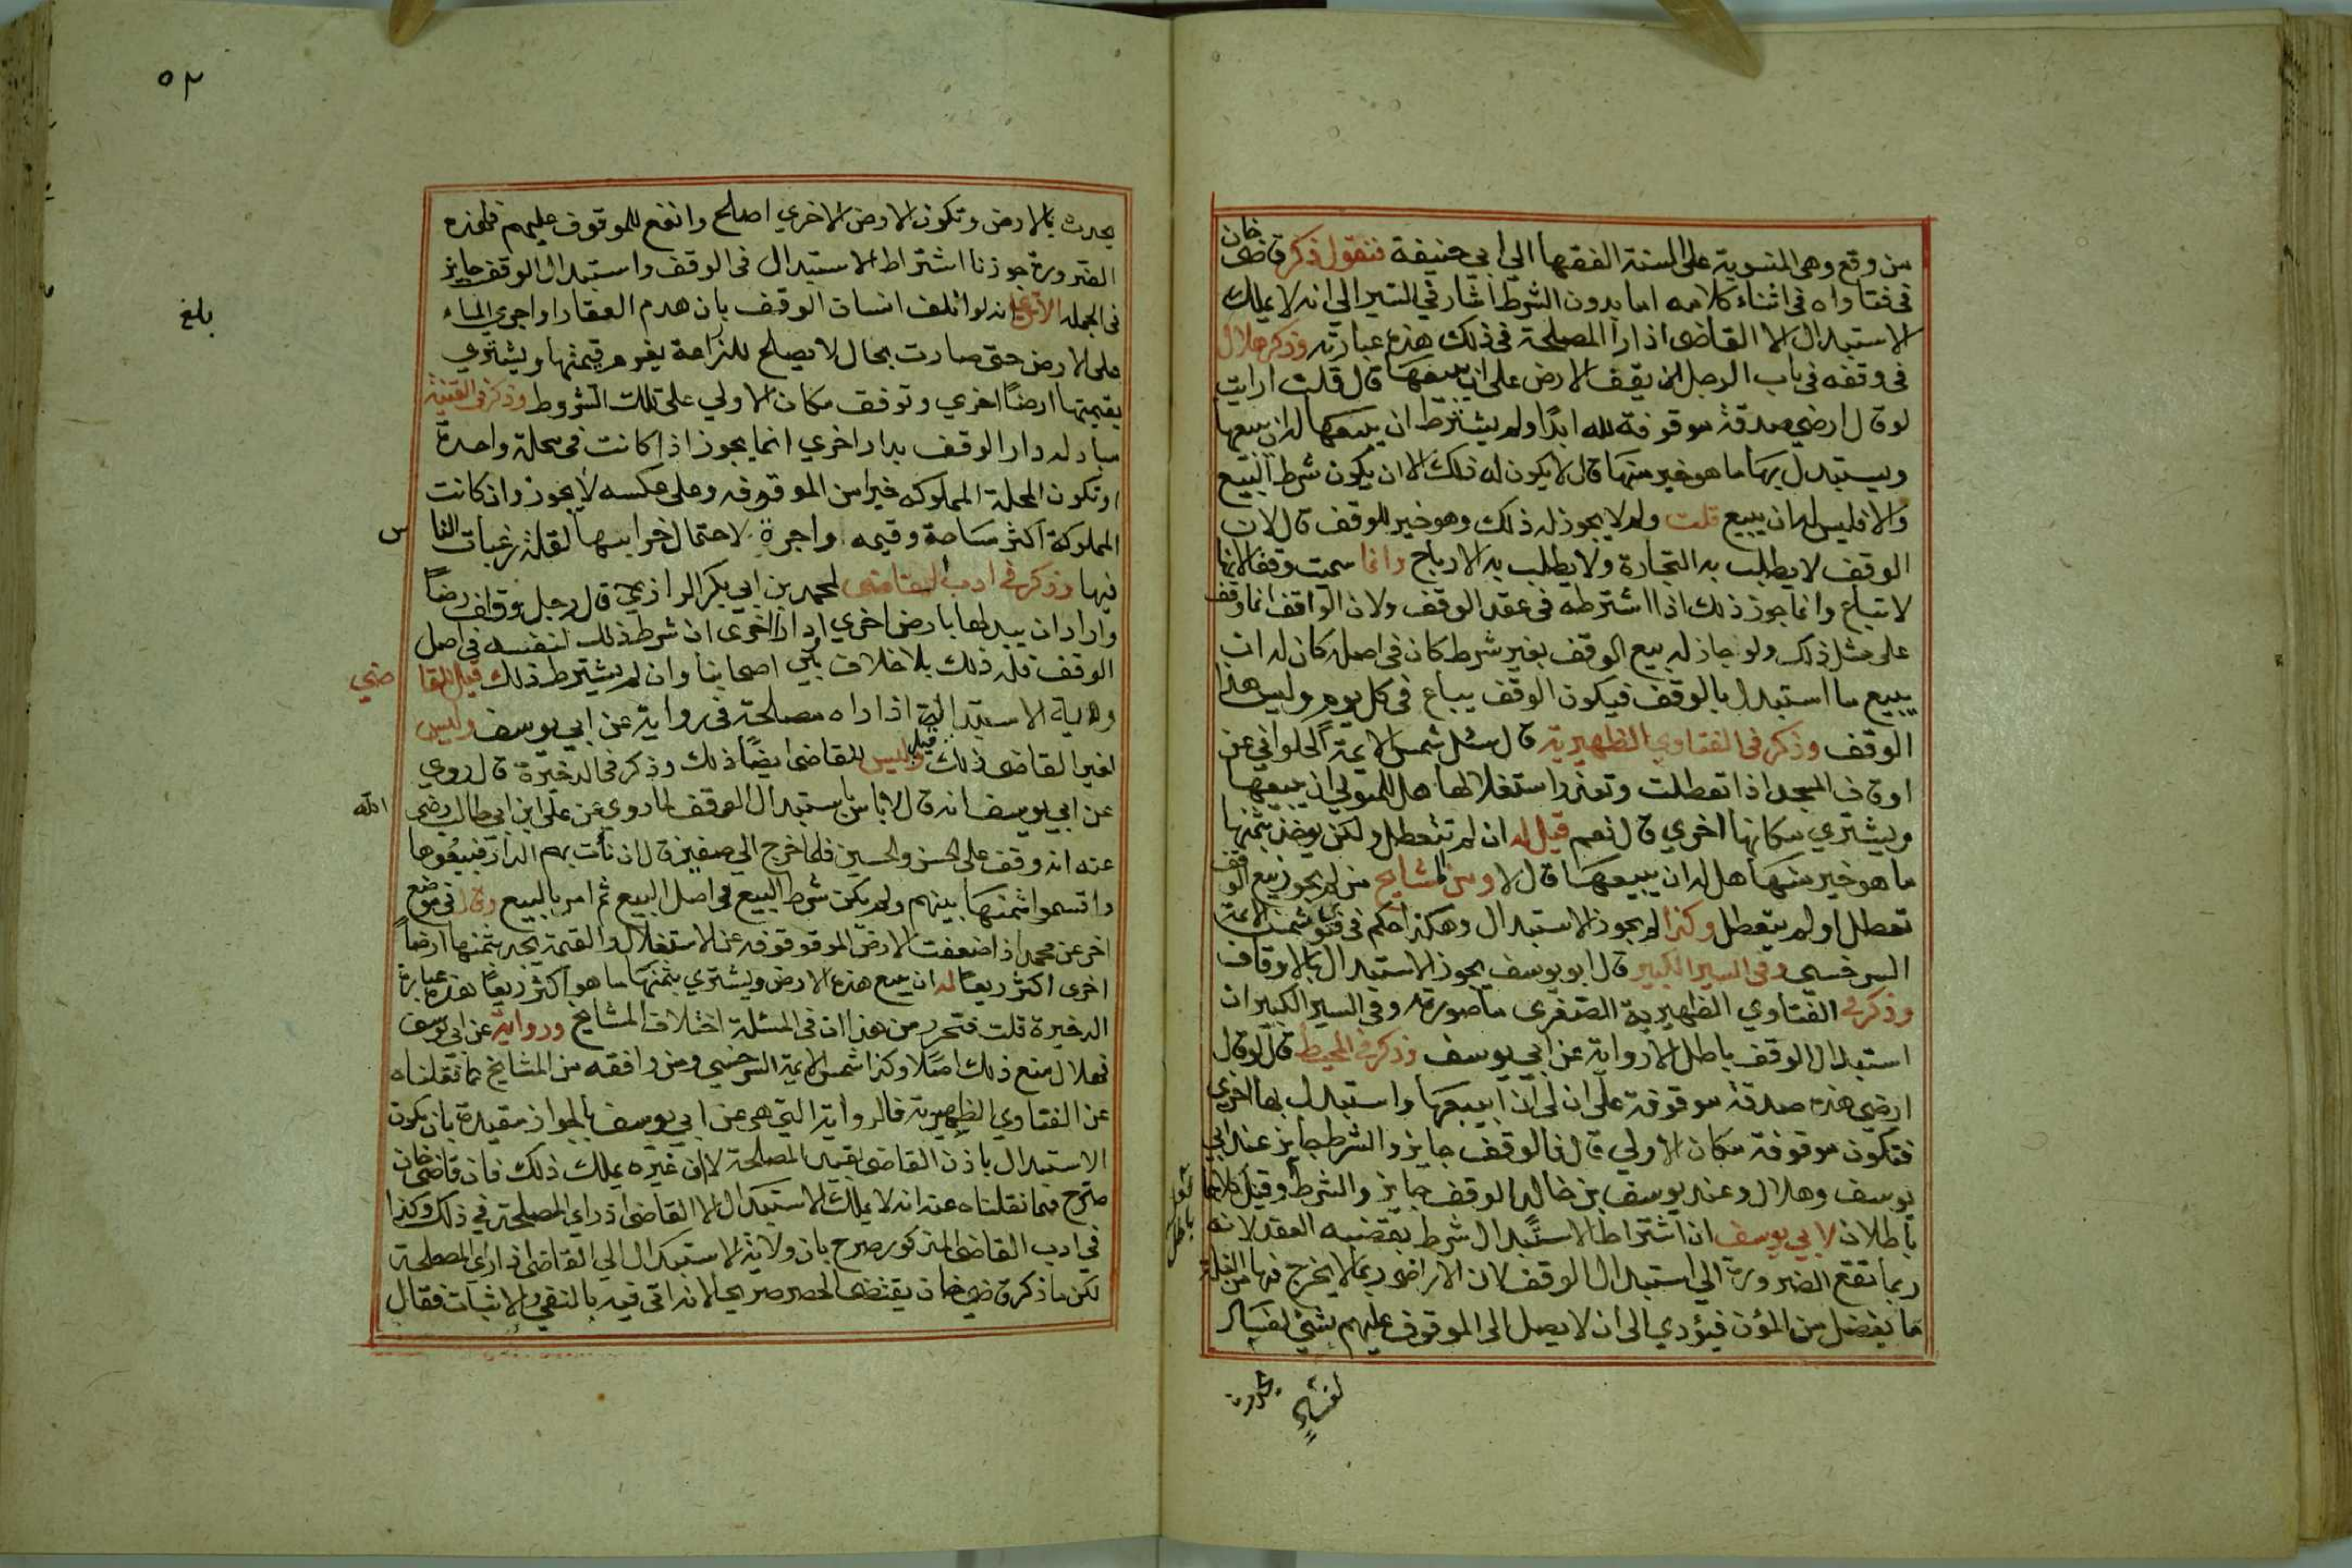 من وقع وهى المنسوبة على السنة الفقها الي ابي حنيفة فنقول ذكر قاضى خان
فى فتاواه فى اثناء كلامه اما بدون الشرط اشار في السير الي انه لا يملك
الاستبدال الا القاضى اذا راا المصلحة فى ذلك هذه عبارته وذكر هلال
فى وقفه فى باب الرجل يقف الارض على ان يبيعها قال قلت ارايت
لو قال ارضي صدقة موقوفة لله ابدًا ولم يشترط ان يبيعها له ان يبيعها
ويستبدل بها ما هو خير منها قال لا يكون له ذلك الا ان يكون شرط البيع
والا فليس له ان يبيع قلت ولم لا يجوز له ذلك وهو خير للوقف قال لان
الوقف لا يطلب به التجارة ولا يطلب به الارباح وانما سميت وقفا لانها
لا تباع وانما جوز ذلك اذا اشترطه فى عقد الوقف ولان الواقف انما وقف
على مثل ذلك ولو جاز له بيع الوقف بغير شرط كان فى اصله كان له ان
يبيع ما استبدل بالوقف فيكون الوقف يباع فى كل يوم وليس هكذا
الوقف وذكر فى الفتاوي الظهيرية قال سئل شمس الايمة الحلواني عن
اوقاف المسجد اذا تعطلت وتعذر استغلالها هل للمتولي ان يبيعها
ويشتري مكانها اخري قال نعم قيل له ان لم تتعطل ولكن يوخذ بثمنها
ما هو خير منها هل له ان يبيعها قال لا ومن المشايخ من لم يجوز بيع الوقف
تعطل او لم يتعطل وكذا لم يجوز الاستبدال وهكذا حكم فى فتوى شمس الايمة
السرخسي وفى السير الكبير قال ابو يوسف يجوز الاستبدال بالاوقاف
وذكر فى الفتاوي الظهيرية الصغرى ما صورته وفى السير الكبير ان
استبدال الوقف باطل الا رواية عن ابي يوسف وذكر فى المحيط قال لو قال
ارضي هذه صدقة موقوفة على ان لي ان ابيعها واستبدل بها اخرى
فتكون موقوفة مكان الاولي قال فالوقف جايز والشرط جايز عند ابي
يوسف وهلال وعند يوسف بن خالد الوقف جايز والشرط وقيل كلاهما
باطل
باطلان لابي يوسف ان اشتراط الاستبدال شرط يقتضيه العقد لانه
ربما تقع الضرورة الي استبدال الوقف لان الاراضى ربما لا يخرج منها من الغلة
ما يفضل من المؤن فيؤدي الى ان لا يصل الى الموقوف عليهم بشي لفساد
لفساد يحدث
٥٢
يحدث بالارض وتكون الارض الاخري اصلح وانفع للموقوف عليهم فلهذه
الضرورة جوزنا اشتراط الاستبدال فى الوقف واستبدال الوقف جايز
فى الجملة الا ترى انه لو اتلف انسان الوقف بان هدم العقار او اجري الماء
بلغ
على الارض حتى صارت بحال لا يصلح للزراعة يغرم قيمتها ويشتري
بقيمتها ارضًا اخري وتوقف مكان الاولي على تلك الشروط وذكر فى القنية
مبادله دار الوقف بدار اخري انما يجوز اذا كانت فى محلة واحدة
او تكون المحلة المملوكه خيرا من الموقوفه وعلى عكسه لا يجوز وان كانت
المملوكة اكثر مساحة وقيمه واجرة لاحتمال خرابها لقلة رغبات الناس
فيها وذكر فى ادب القاضى لمحمد بن ابي بكر الرازي قال رجل وقف ارضاً
واراد ان يبدلها بارض اخري او دار اخرى ان شرط ذلك لنفسه فى اصل
الوقف فله ذلك بلا خلاف بين اصحابنا وان لم يشترط ذلك قيل للقاضي
ولاية الاستبدال اذا راه مصلحة فى رواية عن ابي يوسف وليس
لغير القاضى ذلك وقيل ليس للقاضى ايضًا ذلك وذكر فى الدخيرة قال روي
عن ابي يوسف انه قال لا باس باستبدال الوقف لما روي عن على ابن ابى طالب رضى الله
عنه انه وقف على الحسن والحسين فلما خرج الي صفين قال ان نأت بهم الدار فبيعوها
واقسموا ثمنها بينهم ولم يكن شرط البيع فى اصل البيع ثم امر بالبيع وقال فى موضع
اخر عن محمد اذا ضعفت الارض الموقوفه عن الاستغلال والقيمة يجد بثمنها ارضاً
اخرى اكثر ريعًا له ان يبيع هذه الارض ويشتري بثمنها ما هو اكثر ريعًا هذه عبارة
الدخيرة قلت فتحرر من هذا ان فى المسئلة اختلاف المشايخ ورواية عن ابى يوسف
فهلال منع ذلك اصلا وكذا شمس الايمة السرخسي ومن وافقه من المشايخ كما نقلناه
عن الفتاوي الظهيرية فالرواية التى هى عن ابي يوسف بالجواز مقيدة بان يكون
الاستبدال باذن القاضى بقيد المصلحة لا ان غيره يملك ذلك فان قاضى خان
صرح فيما نقلناه عنه انه لا يملك الاستبدال الا القاضى اذ راي المصلحة في ذلك وكذا
في ادب القاضى المذكور صرح بان ولاية الاستبدال الي القاضى اذ راي المصلحة
لكن ما ذكره قاضي خان يقتضى الحصر صريحا لانه اتى فيه بالنفي والاثبات فقال